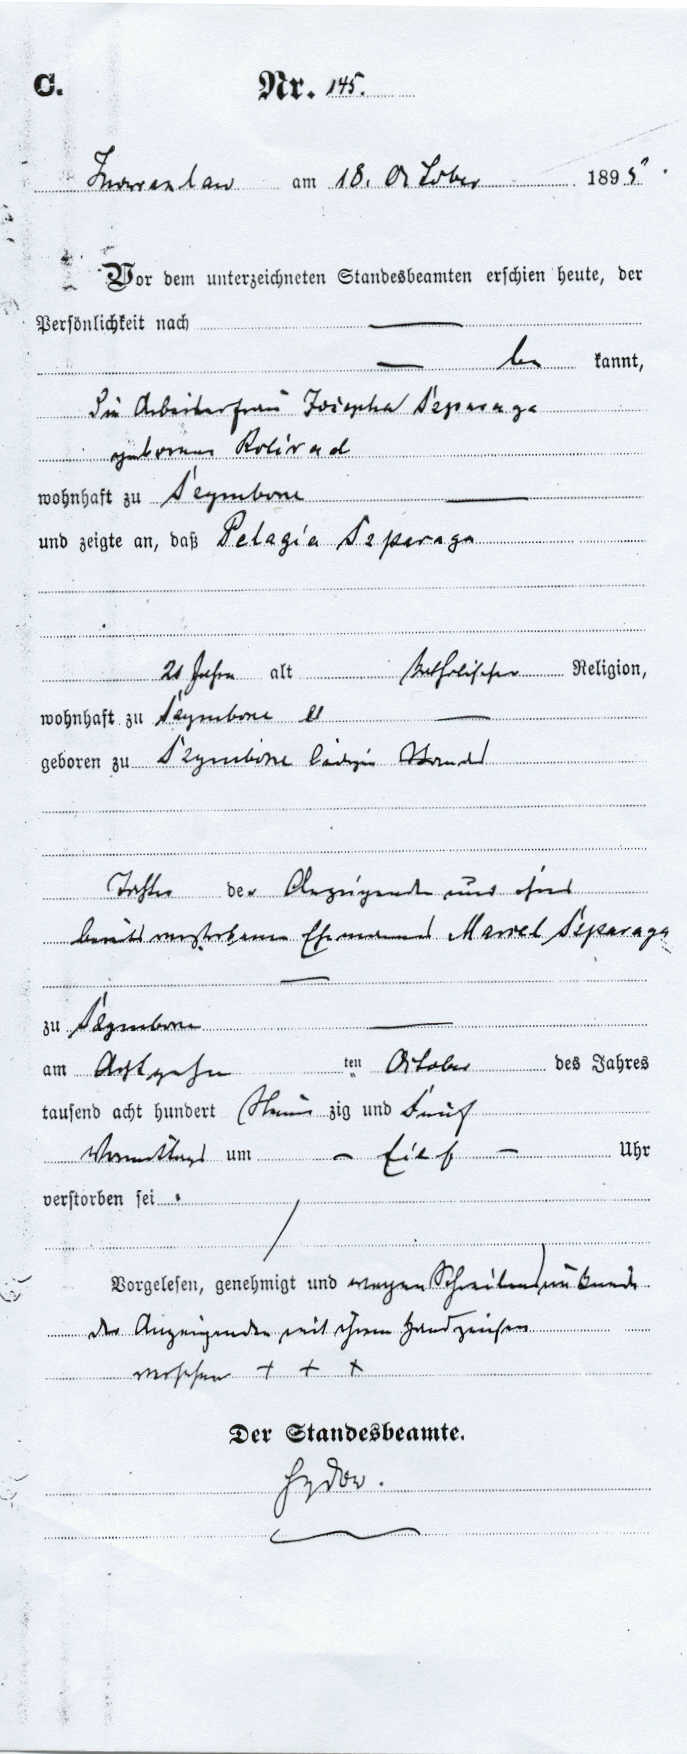 C. Nr. 145.
Inowrazlaw am 18. October 1895
Vor dem unterzeichneten Standesbeamten erschien heute, der
Persönlichkeit nach —
— be kannt,
die Arbeiterfrau Josepha Szparaga
geborene
wohnhaft zu Szymborze —
und zeigte an, daß Pelagia Szparaga
21 Jahre alt katholischer Religion,
wohnhaft zu Szymborze —
geboren zu Szymborze ledigen Standes
Tochter der Anzeigenden und ihres
bereits verstorbenen Ehemannes Marcel Szparaga
—
zu Szymborze —
am Achtzehn ten October des Jahres
tausend acht hundert Neun zig und Fünf
Vormittags um — Eilf — Uhr
verstorben sei.
Vorgelesen, genehmigt und wegen Schreibensunkunde
der Anzeigenden mit ihrem Handzeichen
versehen + + +
Der Standesbeamte.